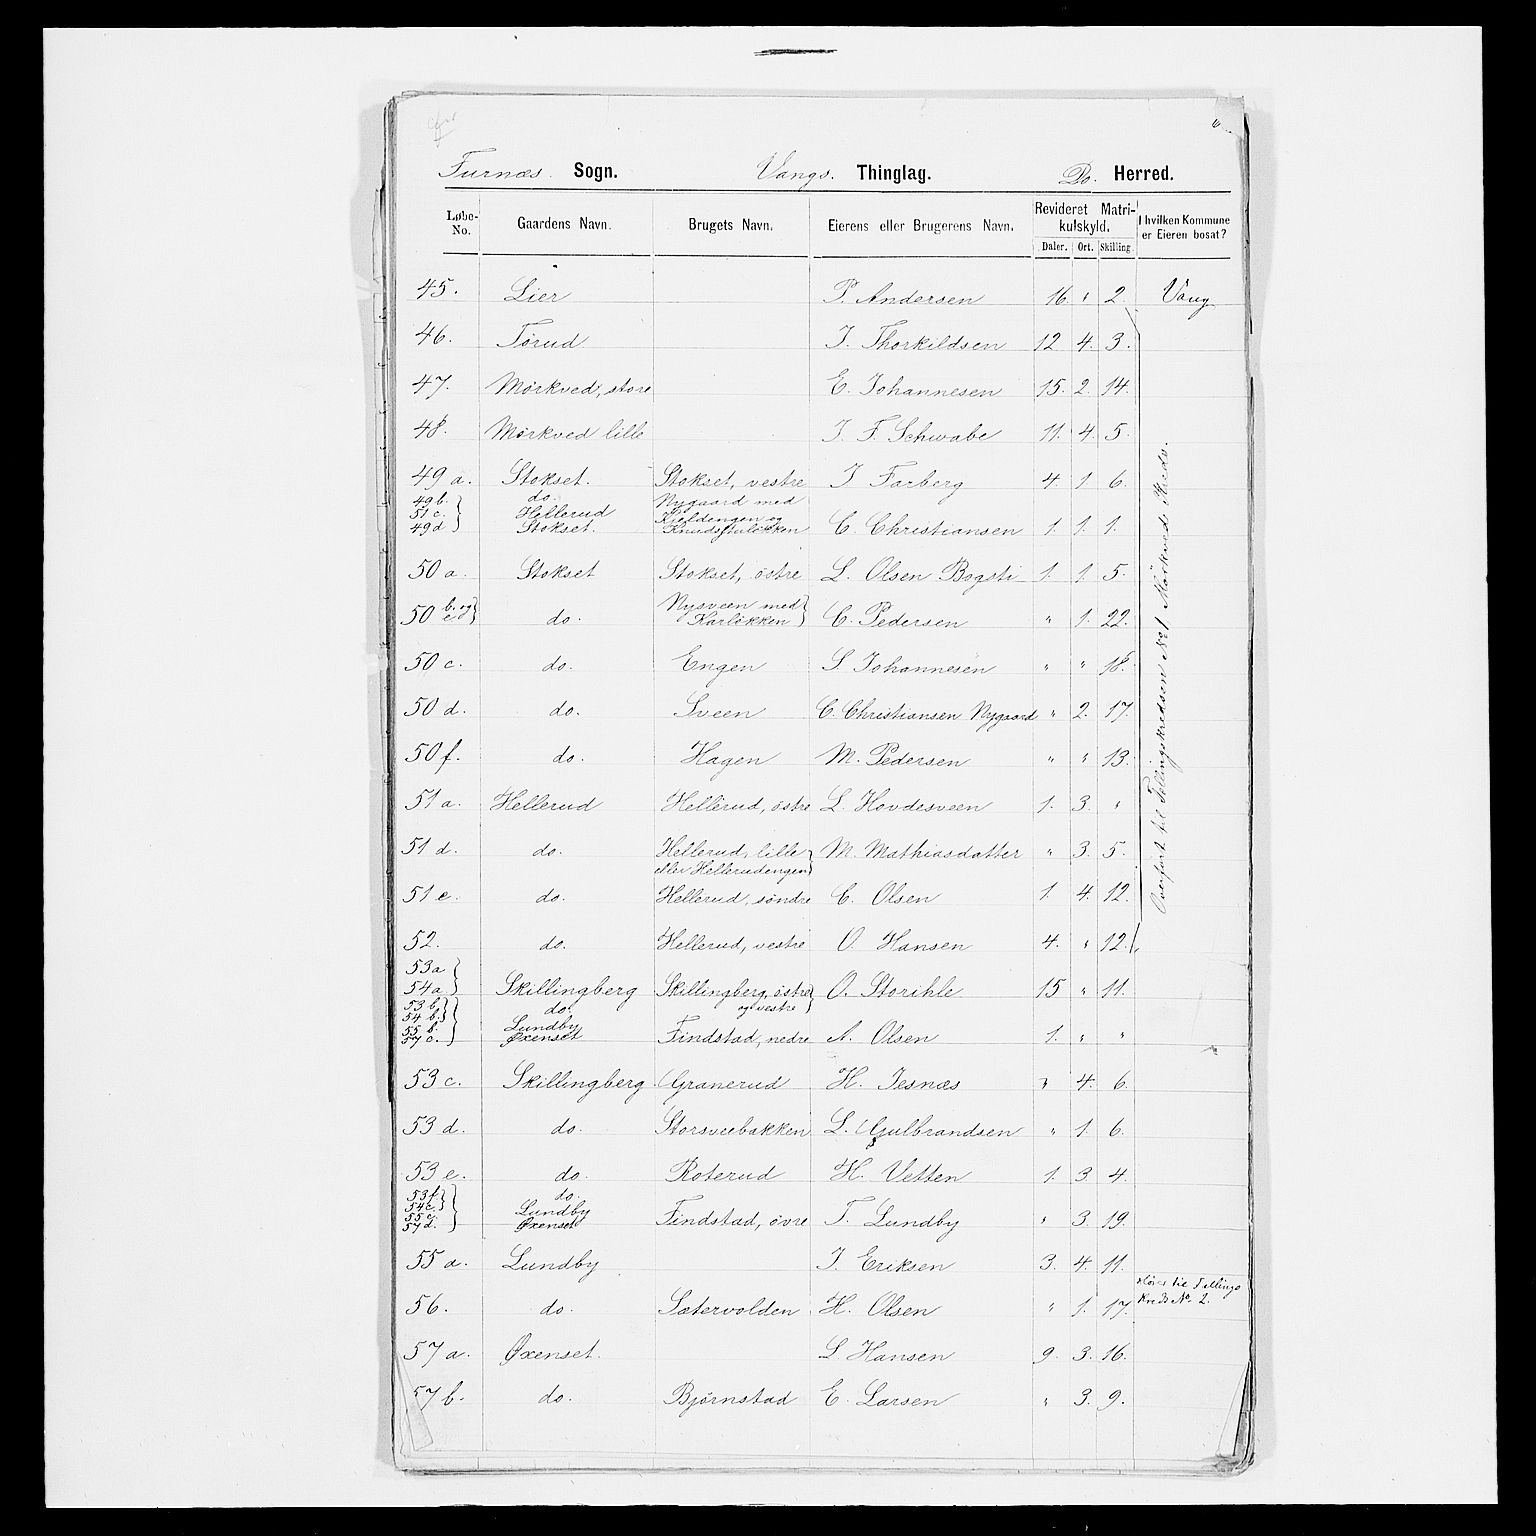 Furnæs. Sogn. Vangs. Thinglag. Do. Herred.
Løbe-No. Gaardens Navn. Brugets Navn. Eierens eller Brugerens Navn. Revideret Matrikulskyld. I hvilken Kommune er Eieren bosat?
Daler. Ort. Skilling.
45. Lier P. Andersen 16 " 2. Vang
46. Tørud J. Thorkildsen 12 4. 3.
47. Mørkved, store E. Johannesen 15. 2. 14.
48. Mørkved lille J. F. Schwabe 11. 4. 5.
49 a. Stokset. Stokset, vestre J Farberg 4. 1 6.
49 b. do. Nygaard med
51 c. Hellerud Kjeldengen og
49 d Stokset. Knudsstuløkken C. Christiansen 1. 1. 1.
50 a. Stokset Stokset, östre L. Olsen Bogsti 1. 1. 5.
50 b. og e. do. Nysveen med Karløkken C. Pedersen " 1. 22.
50 c. do. Engen S. Johannesen " " 18.
50 d. do. Sveen C. Christiansen Nygaard " 2. 17.
50 f. do. Hagen M. Pedersen " " 13.
51 a. Hellerud Hellerud, östre L. Hovdesveen 1. 3. "
51 d. do. Hellerud, lille M. Mathiasdatter " 3. 5.
eller Hellerudengen
51 e. do. Hellerud, søndre C. Olsen 1. 4. 12.
52. do. Hellerud, vestre O. Hansen 4. " 12.
53a
54a Skillingberg Skillingberg, østre O. Storihle 15 " 11.
og vestre
53 b. do.
54 b.
55 b. Lundby
57 c. Øxenset Findstad, nedre A. Olsen 1. " "
53 c. Skillingberg Granerud H. Jesnæs " 4. 6.
53 d. do. Storsveebakken L. Gulbrandsen " 1. 6.
53 e. do. Roterud H. Vetten 1. 3 4.
53f. do.
54c. Lundby
55 c.
57 d. Øxenset Findstad, övre T. Lundby " 3. 19.
55 a. Lundby J. Eriksen 3. 4. 11.
56. do. Sætervolden H. Olsen " 1. 17.
57 a. Øxenset. L Hansen 9. 3. 16.
57 b. do. Bjørnstad E. Larsen " 3. 9.
Overført til Tællingskredsen No 1 Mørkved Kreds.
til Tællings
Kreds No 2.